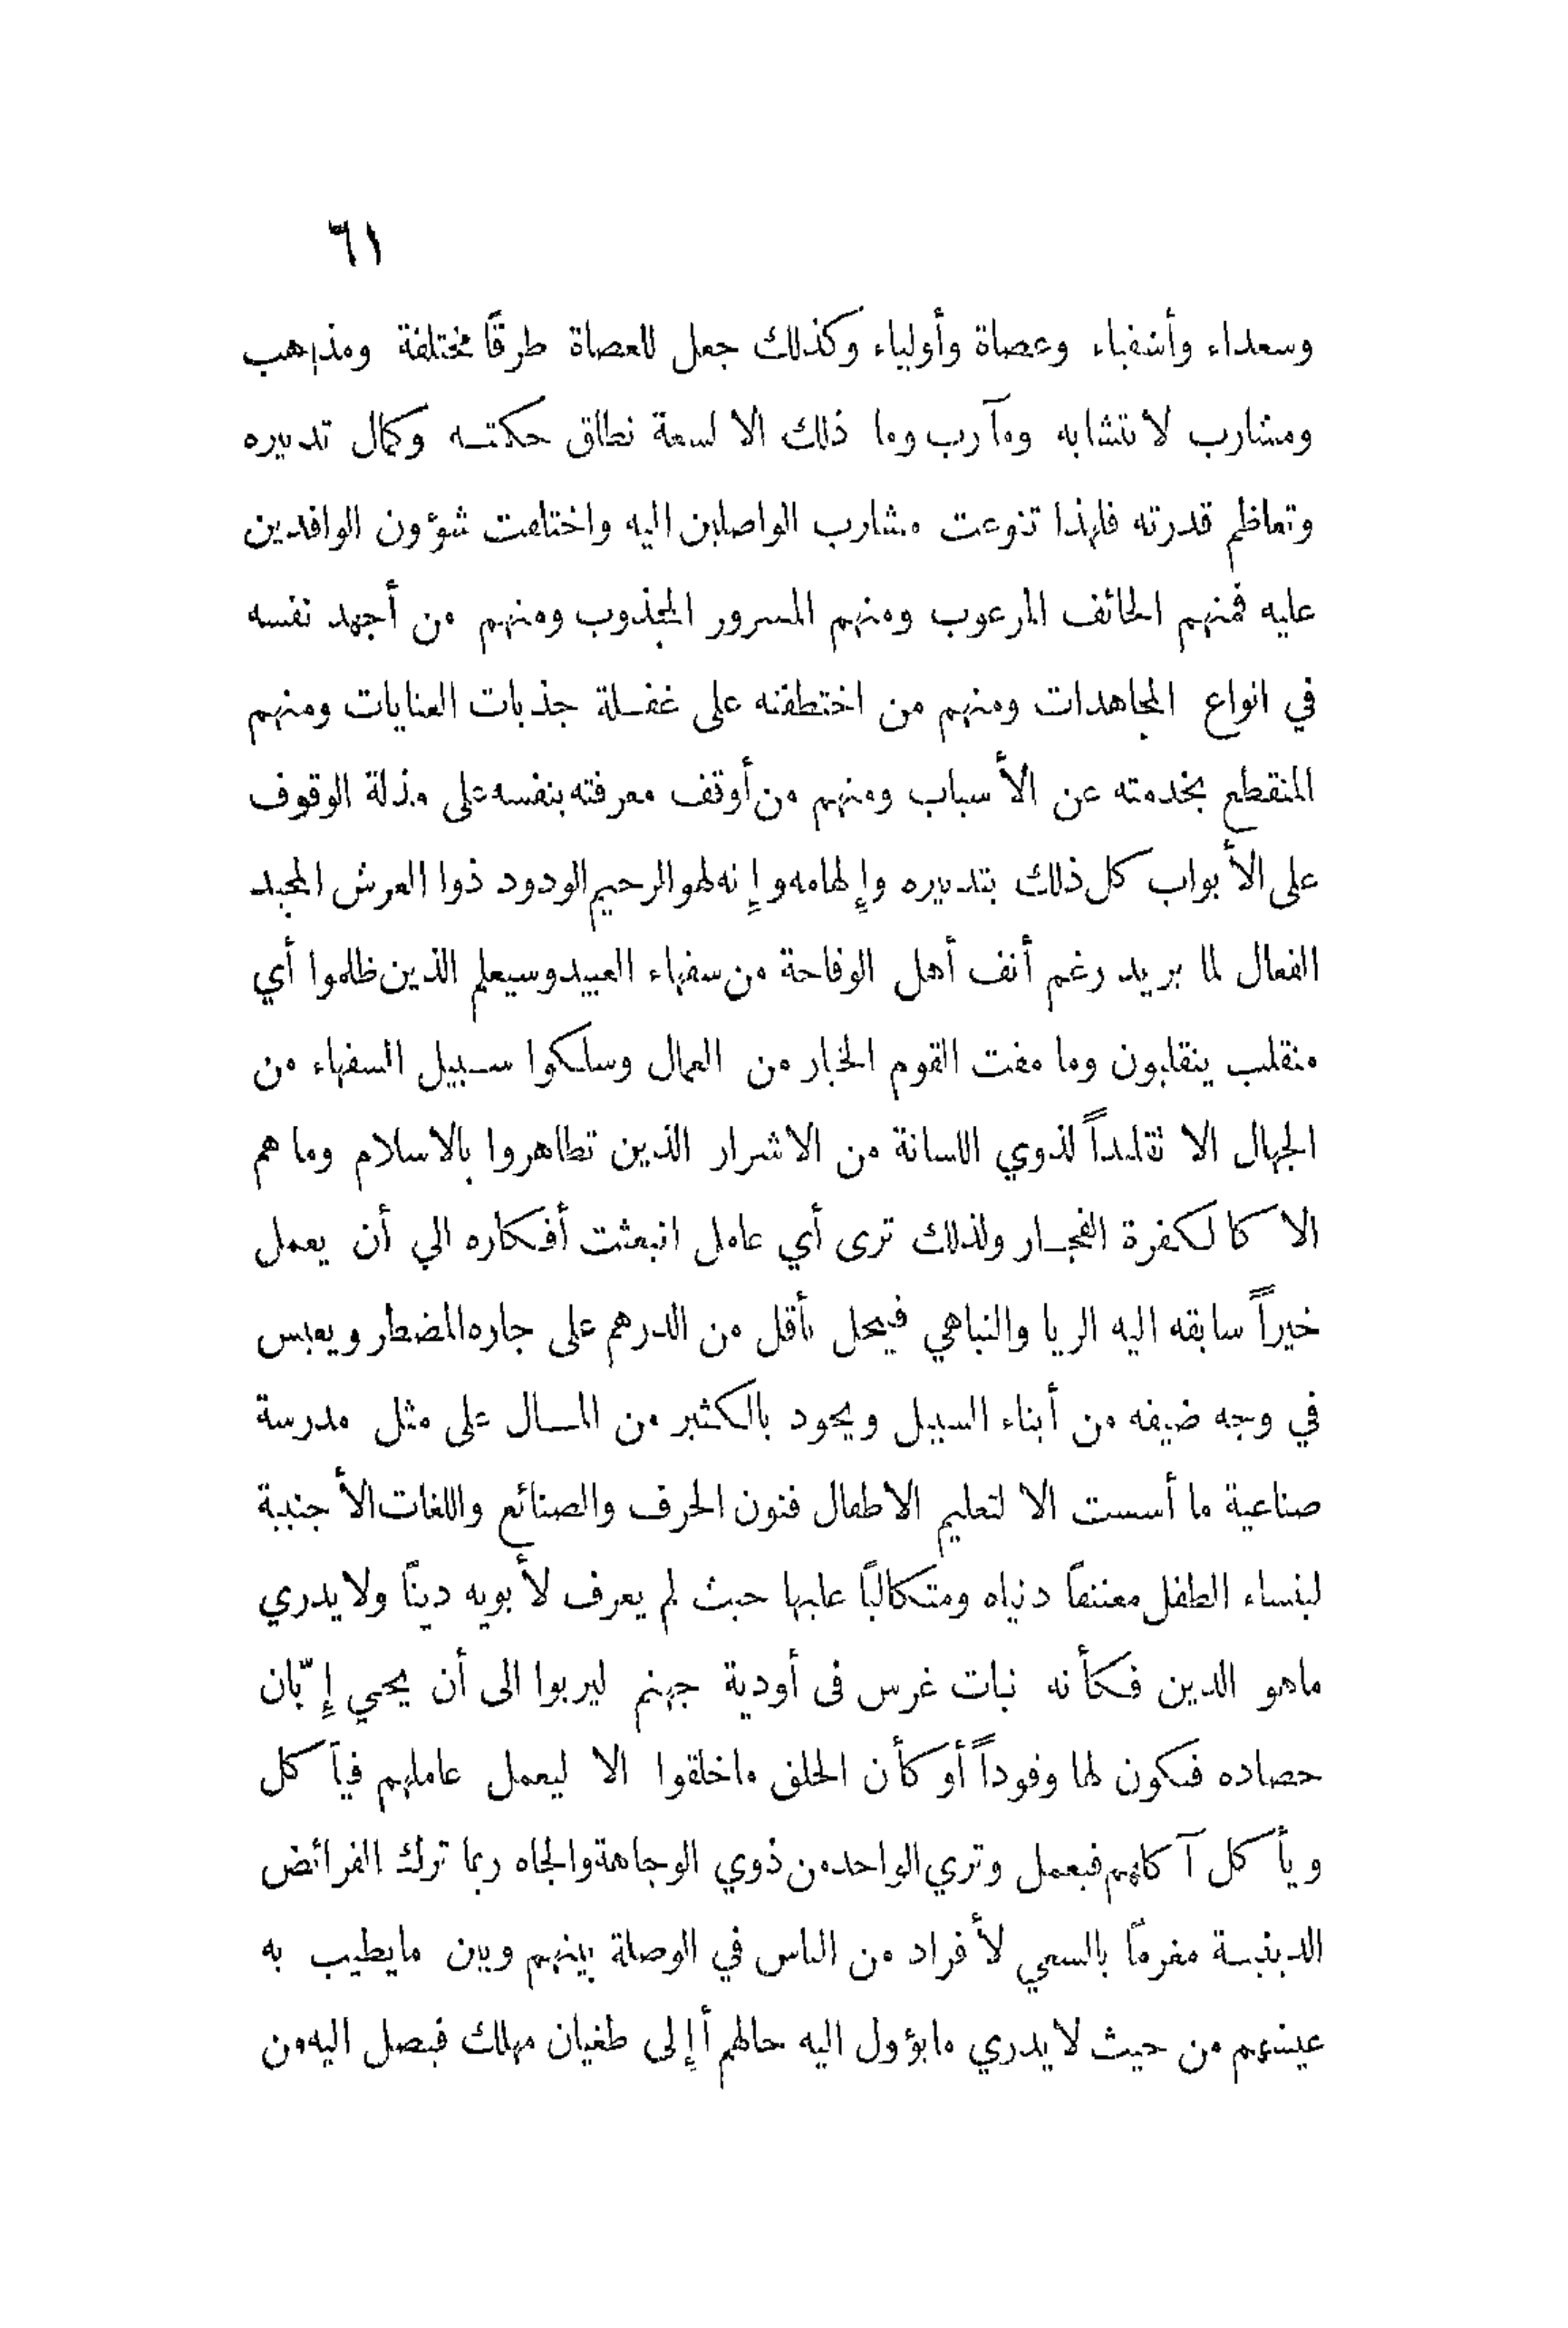 ٦١
وسعداء وأشقياء وعصاة وأولياء وكذلك جعل للعصاة طرقاً مختلفة ومذاهب
ومشارب لا تتشابه ومآرب وما ذلك الا لسعة نطاق حكمته وكمال تدبيره
وتعاظم قدرته فلهذا تنوعت مشارب الواصلين اليه واختلفت شؤون الوافدين
عليه فمنهم الخائف المرعوب ومنهم المسرور المجذوب ومنهم من أجهد نفسه
في انواع المجاهدات ومنهم من اختطفته على غفلة جذبات العنايات ومنهم
المنقطع بخدمته عن الأسباب ومنهم من أوقف معرفته بنفسه على مذلة الوقوف
على الأبواب كل ذلك بتدبيره وإلهامه وإنه لهو الرحيم الودود ذوا العرش المجيد
الفعال لما يريد رغم أنف أهل الوقاحة من سفهاء العبيد وسيعلم الذين ظلموا أي
منقلب ينقلبون وما مقت القوم الخيار من العمال وسلكوا سبيل السفهاء من
الجهال الا تقليداً لذوي اللسانة من الاشرار الذين تظاهروا بالاسلام وما هم
الا كالكفرة الفجار ولذلك ترى أي عامل انبعثت أفكاره الي أن يعمل
خيراً سابقه اليه الريا والتباهي فيبخل بأقل من الدرهم على جاره المضطر ويعبس
في وجه ضيفه من أبناء السبيل ويجود بالكثير من المال على مثل مدرسة
صناعية ما أسست الا لتعليم الاطفال فنون الحرف والصنائع واللغات الأجنبية
لينساء الطفل معتنقاً دنياه ومتكالباً عليها حيث لم يعرف لأبويه ديناً ولا يدري
ماهو الدين فكأنه نبات غرس فى أودية جهنم ليربوا الى أن يجي إبّان
حصاده فيكون لها وقوداً أو كأن الخلق ماخلقوا الا ليعمل عاملهم فيأكل
ويأكل آكلهم فيعمل وتري الواحد من ذوي الوجاهة والجاه ربما ترك الفرائض
الدينية مغرماً بالسعي لأفراد من الناس في الوصلة بينهم وبين مايطيب به
عيشهم من حيث لايدري مايؤول اليه حالهم أإلى طغيان مهلك فيصل اليه من